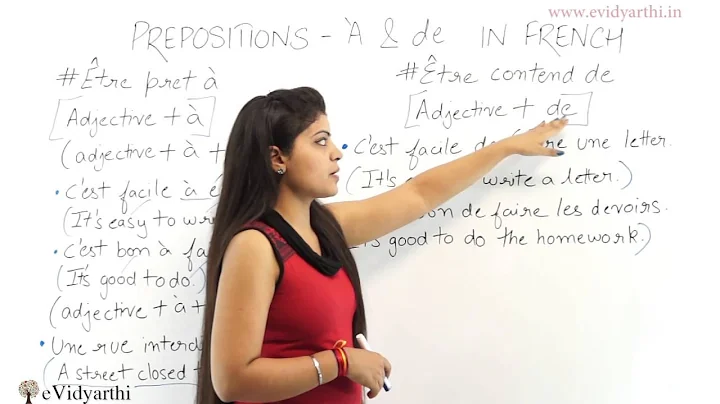 www.evidyarthi.in
PREPOSITIONS - À & de IN FRENCH
# Être pret à
Adjective + à
(adjective + à +
• c'est facile à
(It's easy to
• c'est bon à
(It's good to do.)
(adjective + à +
• Une rue
(A street closed
# Être contend de
Adjective + de
• c'est facile une letter.
(It's write a letter.)
bon de faire les devoirs.
good to do the homework)
eVidyarthi